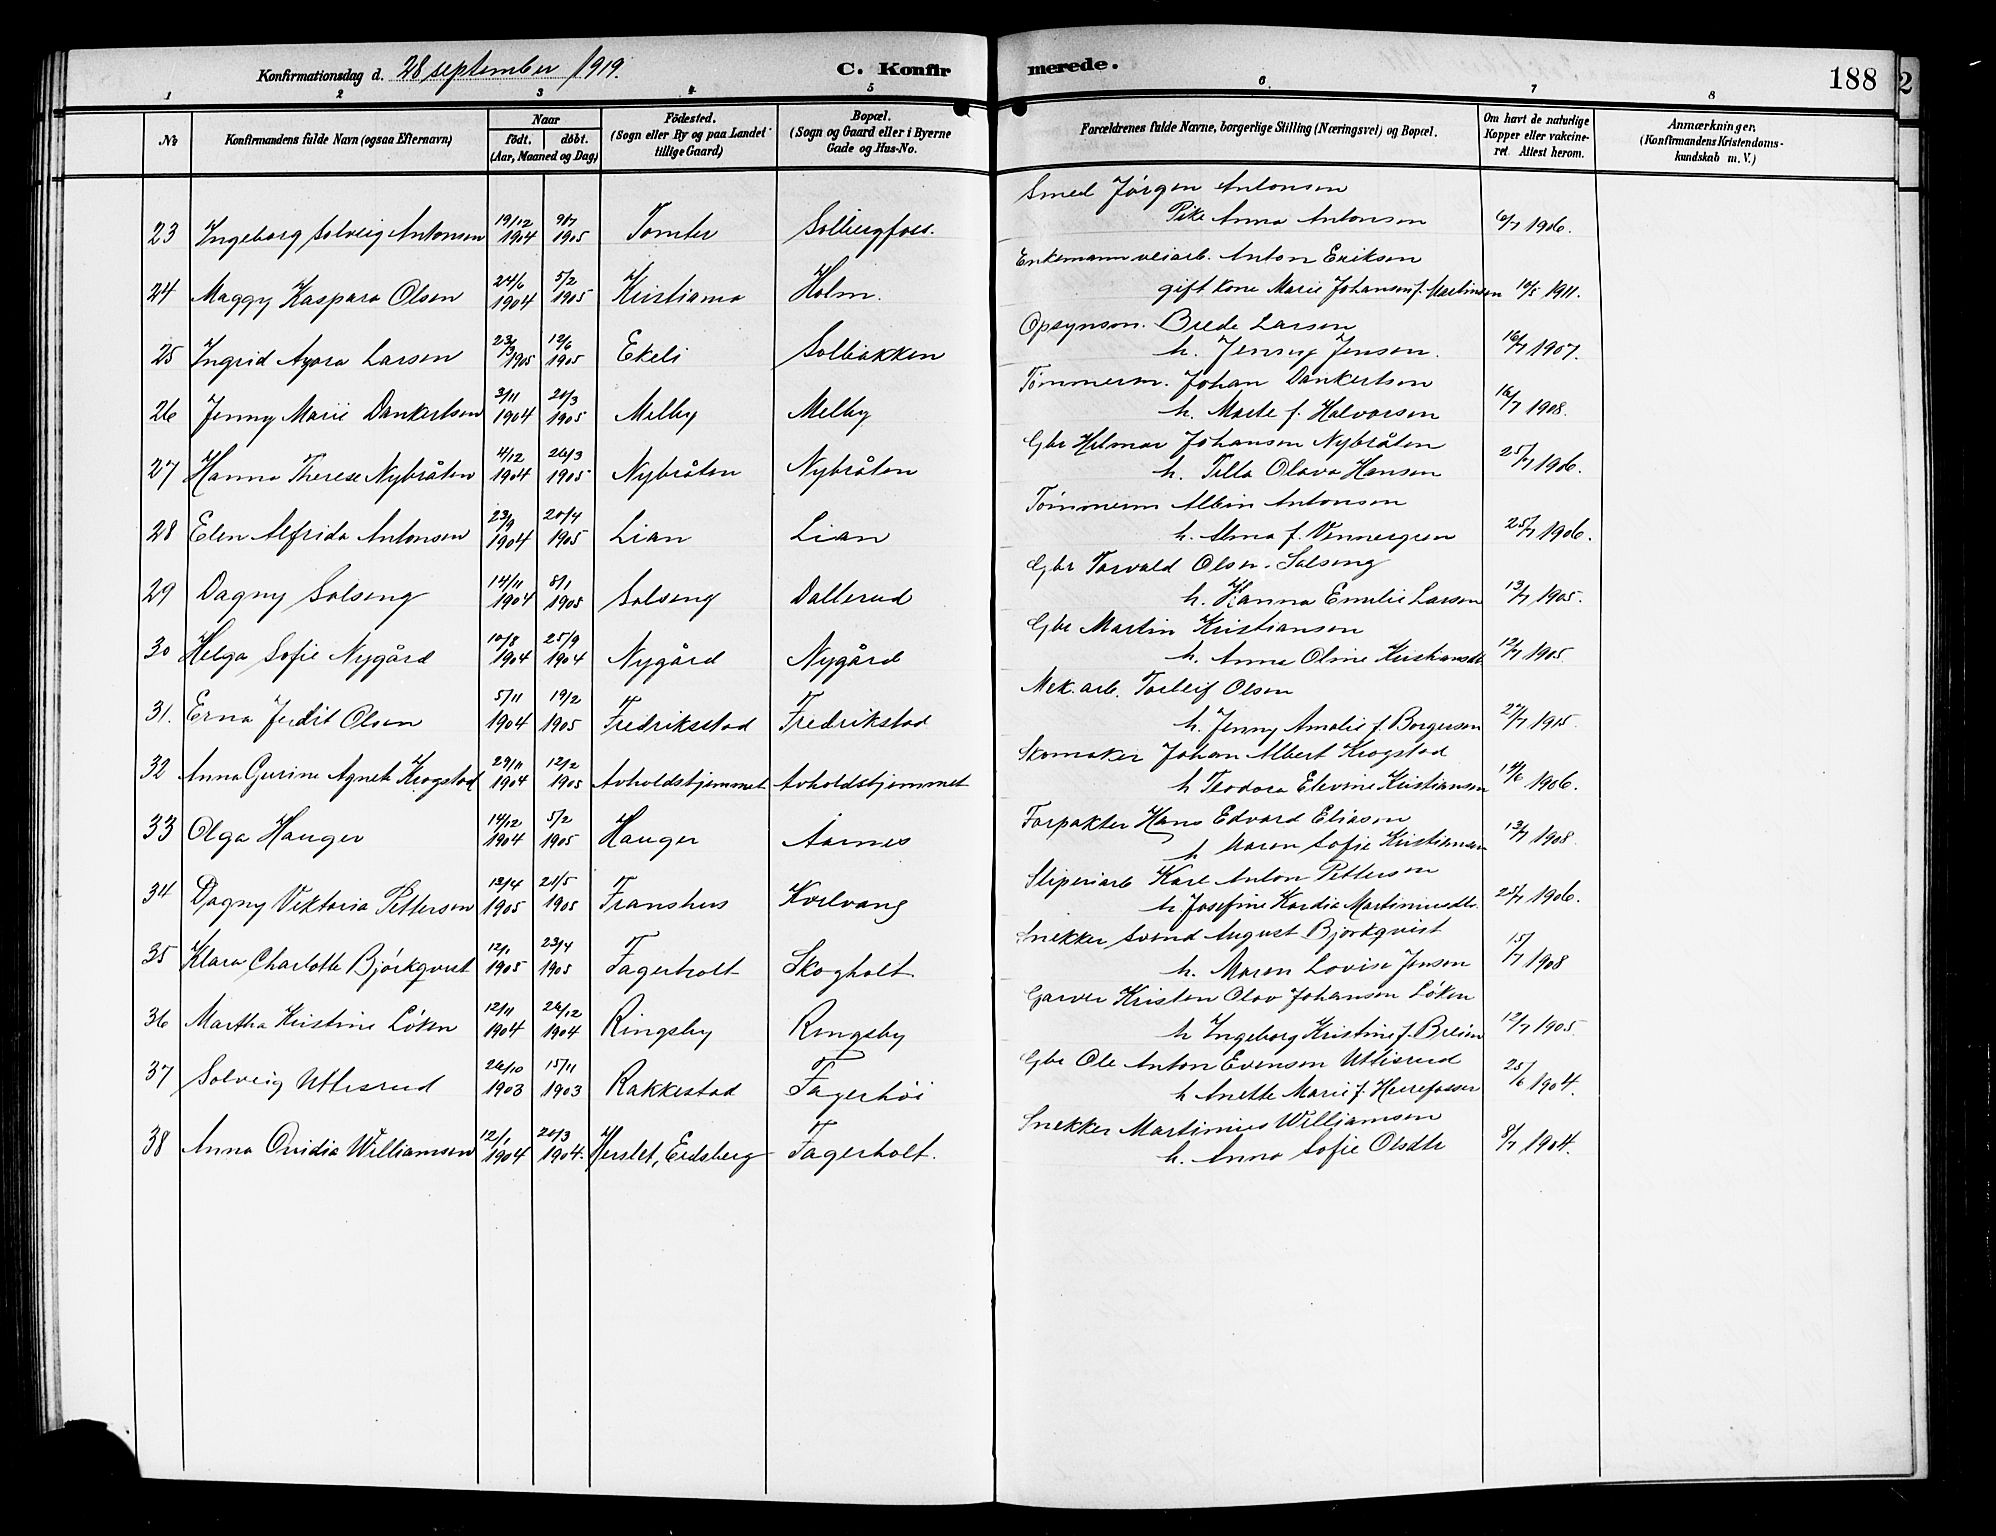 Konfirmationsdag d. 28 september 1919. C. Konfirmerede. 188
1 2 3 4 5 6. 7 8
No Konfirmandens fulde Navn (ogsaa Efternavn) Naar födt. döbt. (Aar, Maaned og Dag) Födested. (Sogn eller By og paa Landet tillige Gaard) Bopæl. (Sogn og Gaard eller i Byerne Gade og Hus-No. Forældrenes fulde Navne, borgerlige Stilling (Næringsvei) og Bopæl. Om havt de naturlige Kopper eller vakcineret. Attest herom. Anmærkninger. (Konfirmandens Kristendomskundskab m. V.)
Smed Jörgen Antonsen
23 Ingeborg Solveig Antonsen 19/12 1904 9/7 1905 Tomter Solbergfoss. Pike Anna Antonsen 6/7 1906.
Enkemann veiarb. Anton Eriksen
24 Maggy Kaspara Olsen 24/6 1904 5/2 1905 Kristiania Holm. gift kone Marie Johansen f. Martinsen 10/5 1911.
Opsynsm. Brede Larsen
25 Ingrid Agora Larsen 23/3 1905 12/6 1905 Ekeli Solbakken h. Jenny Jensen. 16/7 1907.
Tömmerm. Johan Dankertsen
26 Jenny Marie Dankertsen 3/11 1904 20/3 1905 Melby Melby h. Marte f. Halvorsen 16/7 1908.
Gbr Helmar Johansen Nybråten
27 Hanna Therese Nybråten 4/12 1904 26/3 1905 Nybråten Nybråten h. Tilla Olava Hansen 25/7 1906.
Tömmerm Albin Antonsen
28 Elen Alfrida Antonsen 23/9 1904 20/4 1905 Lian Lian h. Alma f. Vennergren 25/7 1906.
Gbr Torvald Olsen. Solseng
29 Dagny Solseng 14/11 1904 8/1 1905 Solseng Dallerud h. Hanna Emilie Larsen 13/7 1905.
Gbr Martin Kristiansen
30 Helga Sofie Nygård 10/8 1904 25/9 1904 Nygård Nygård h. Anna Oline Kristiansdtr 12/7 1905
Mek. arb. Torleif Olsen
31. Erna Judit Olsen 5/11 1904 19/2 1905 Fredriksstad Fredrikstad h. Jenny Amalie f. Borgersen 27/7 1915
Skomaker Johan Albert Krogstad
32 Anna Gurine Agnete Krogstad 29/11 1904 12/2 1905 Avholdshjemmet Avholdshjemmet h Teodora Elevine Kristiansen 14/6 1906.
Forpakter Hans Edvard Eliasen
33 Olga Hauger 14/12 1904 5/2 1905 Hauger Aarnes h Maren Sofie Kristiansen 13/7 1908
Sliperiarb Karl Anton Pettersen
34 Dagny Viktoria Pettersen 12/4 1905 21/5 1905 Franshus Kvelvang h Josefine Kordia Martiniusdtr. 25/7 1906.
Snekker Svend August Bjorkqvist
35 Klara Charlotte Björkqvist 12/1 1905 23/4 1905 Fagerholt Skogholt h. Maren Lovise Jensen 15/7 1908
Garver Kristen Olav Johansen Löken
36 Martha Kristine Löken 12/11 1904 26/12 1904 Ringsby Ringsby h Ingeborg Kristine f. Breien 12/7 1905
Gbr Ole Anton Evensen Utlisrud
37 Solveig Utlisrud 26/10 1903 15/11 1903 Rakkestad Fagerhöi h Anette Marie f. Herrefosser 25/6 1904.
Snekker Martinius Williamsen
38 Anna Ovidia Williamsen 12/1 1904 20/3 1904. Herslet, Eidsberg Fagerholt. h. Anna Sofie Olsdtr 8/7 1904.